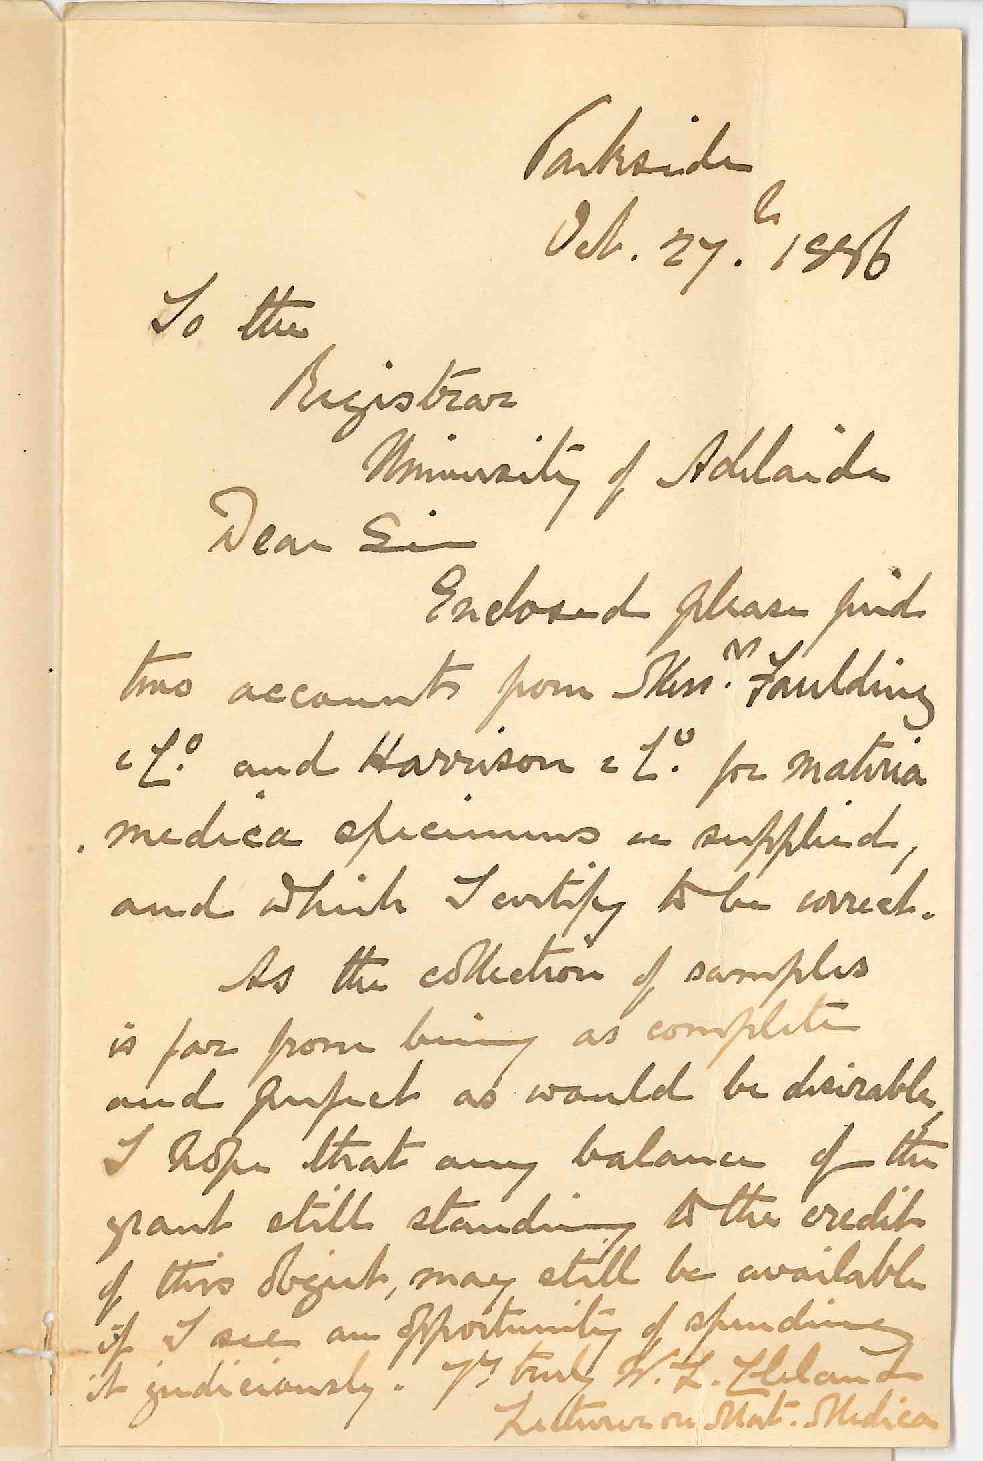 Parkside
Oct. 27.th 1886
To the
Registrar
University of Adelaide
Dear Sir
Enclosed please find
two accounts from Messrs. Faulding
& Co. and Harrison & Co. for materia
medica specimens as supplied,
and which I certify to be correct.
As the collection of samples
is far from being as complete
and perfect as would be desirable,
I hope that any balance of the
grant still standing to the credit
of this object, may still be available
if I see an opportunity of spending
it judiciously. Yrs truly W. L. Cleland
Lecturer on Mat. Medica